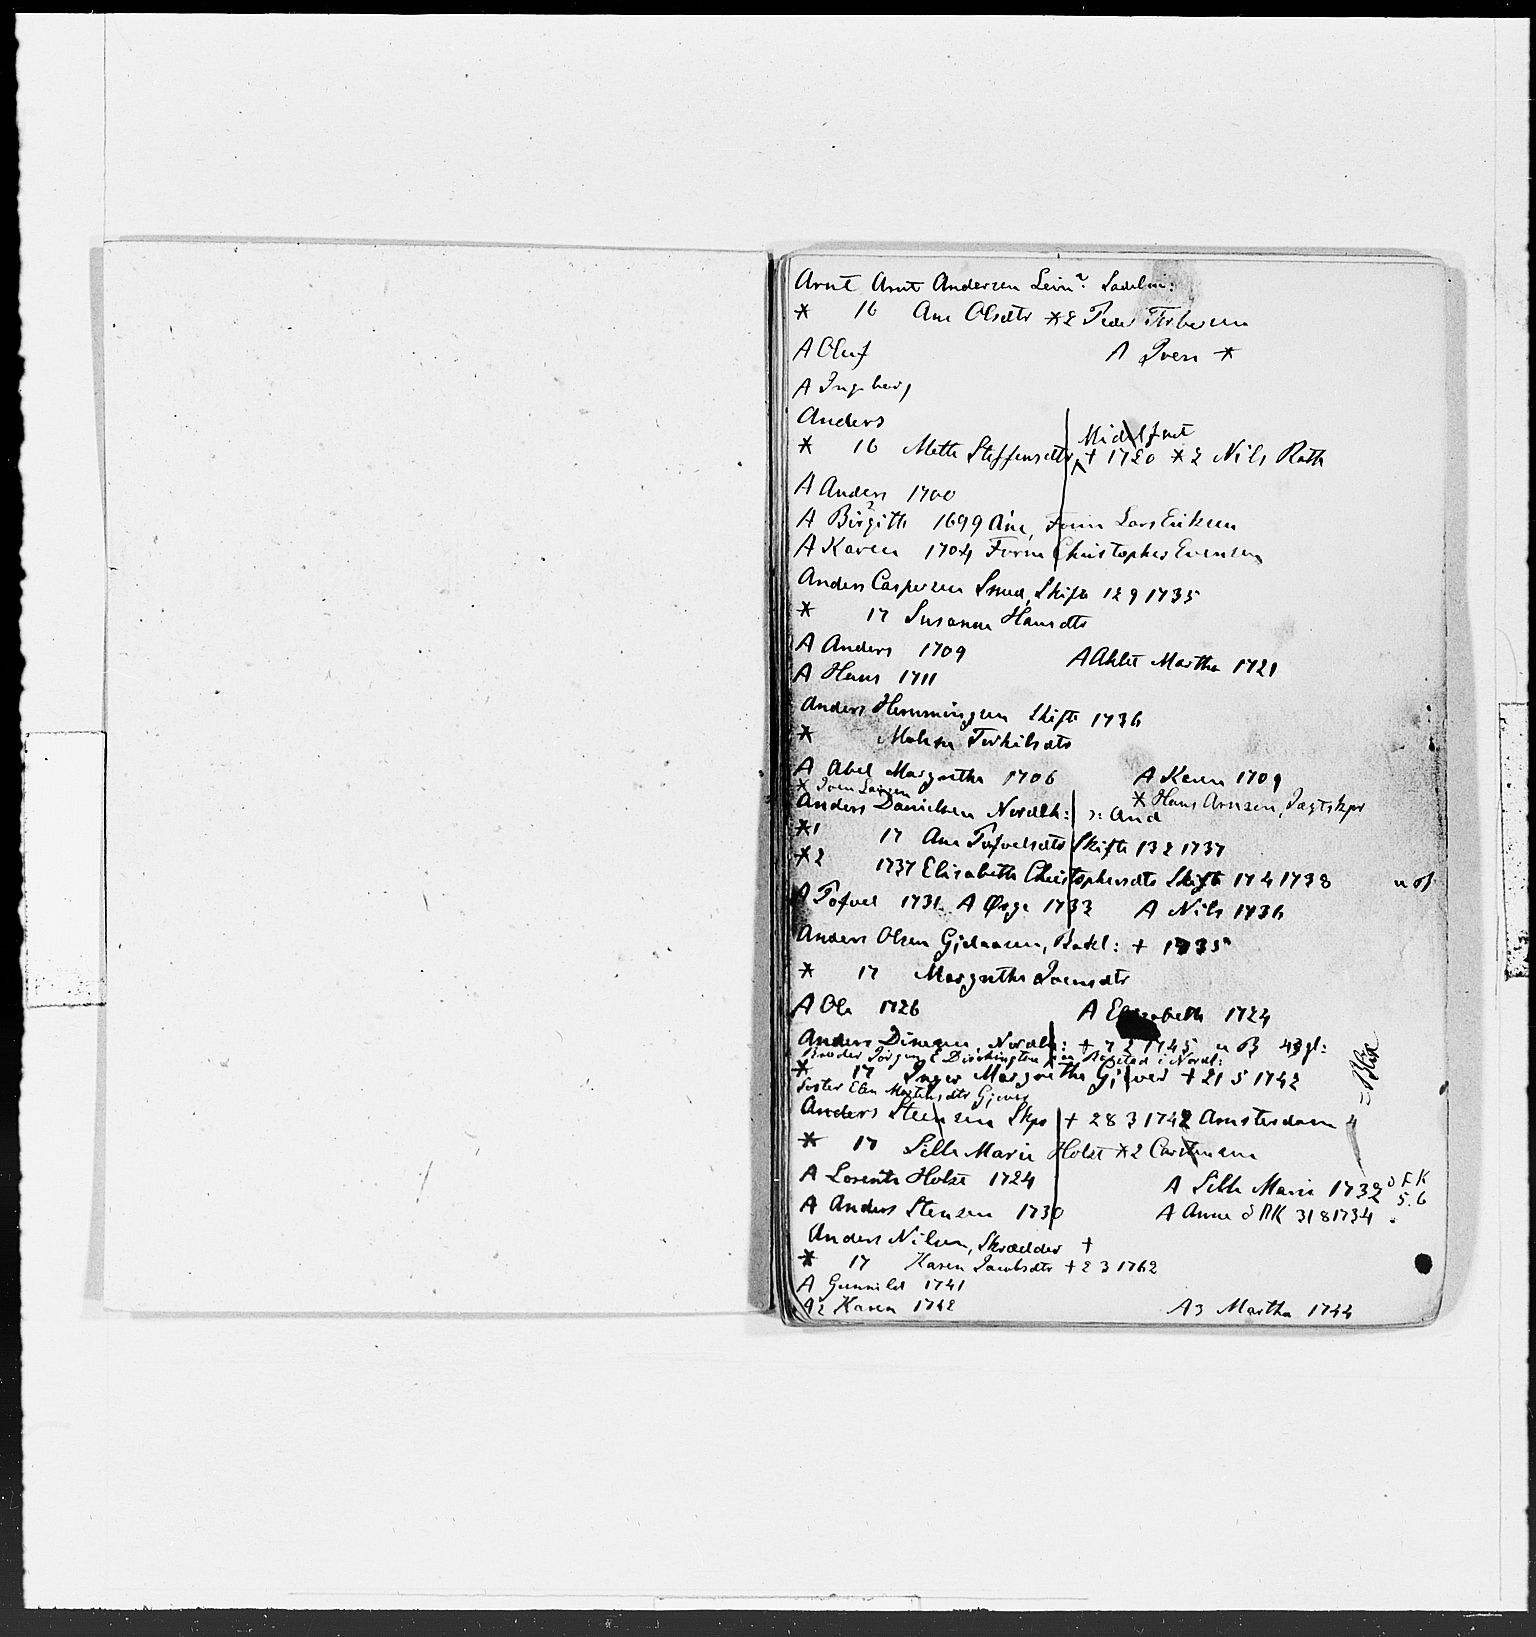 Arnt Arnt Andersen Lein? Sadelm:
* 16 Ane Olsdtr *2 Peder Torbersen
A Oluf A Iven *
A Ingeborg
Anders
Midelfart
* 16 Mette Steffensdtr + 1720 *2 Nils Rath
A Anders 1700
A Birgitte 1699 Lars Eriksen
A Karen 1704 Christopher Evensen
Anders Caspersen Smed, Skifte 12 9 1735
* 17 Susanne Hansdtr
A Anders 1709 A Ahlet Martha 1721
A Hans 1711
Anders Hemmingsen Skifte 1736
* Malene Torkilsdtr
A Abel Margrethe 1706 A Karen 1709
* Iven Larsen * Hans Arnzen, Jagtskpr
Anders Danielsen Nordlh: ɔ: And
*1 17 Ane Tosvelsdtr Skifte 13 2 1737
*2 1737 Elisabeth Christophersdtr Skifte 17 4 1738
A Tosvel 1731 A Øsge 1733 A Nils 1736
Anders Olsen Gjelaasen, + 1735
* 17 Margrethe Ivensdtr
A Ole 1726 A Elisabeth 1724
Anders Nordlh: + 7 2 1745 43 gl:
Broder Jørgen E Dischington i Nordl:
* 17 Inger Margrethe Gjæver + 21 5 1742
Søster Elen Mortensdtr Gjæver
Anders Steensen Skpr + 28 3 1742 Amsterdam
* 17 Sille Marie Holst *2 Carstensen
A Lorentz Holst 1724 A Sille Marie 1732 d F K 5.6
A Anders Stensen 1730 A Anne d NK 31 8 1734
Anders Nilsen, Skrædder +
* 17 Karen Jacobsdtr + 2 3 1762
A Gunnild 1741
A2 Karen 1742 A3 Martha 1744